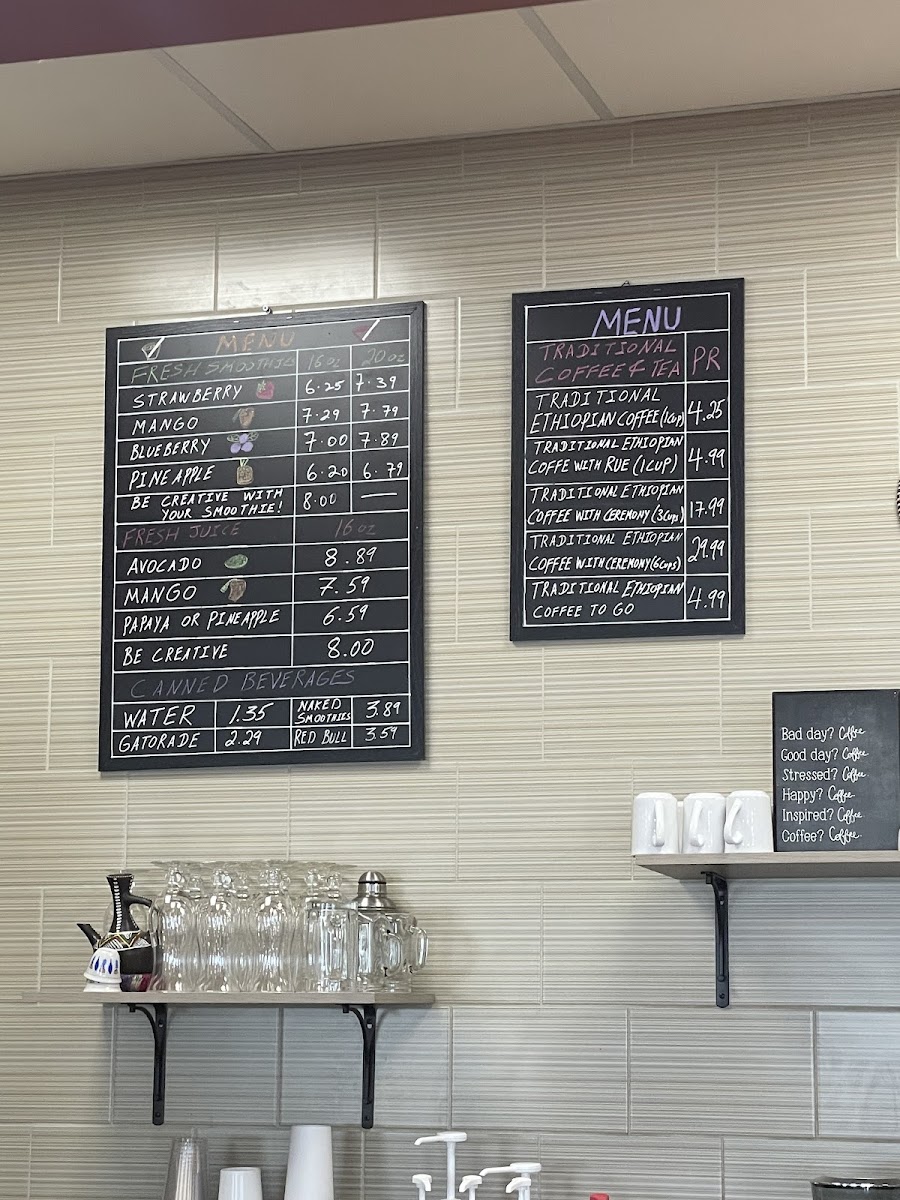 MENU
FRESH SMOOTHIES 16 oz 20 oz
STRAWBERRY 6.25 7.39
MANGO 7.29 7.79
BLUEBERRY 7.00 7.89
PINEAPPLE 6.20 6.79
BE CREATIVE WITH
YOUR SMOOTHIE! 8.00 —
FRESH JUICE 16 oz
AVOCADO 8.89
MANGO 7.59
PAPAYA OR PINEAPPLE 6.59
BE CREATIVE 8.00
CANNED BEVERAGES
WATER 1.35 NAKED
SMOOTHIES 3.89
GATORADE 2.29 RED BULL 3.59
MENU
TRADITIONAL
COFFEE & TEA PR
TRADITIONAL
ETHIOPIAN COFFEE (1 Cup) 4.25
TRADITIONAL ETHIOPIAN
COFFE WITH RUE (1 CUP) 4.99
TRADITIONAL ETHIOPIAN
COFFEE WITH CEREMONY (3 Cups) 17.99
TRADITIONAL ETHIOPIAN
COFFEE WITH CEREMONY (6 Cups) 29.99
TRADITIONAL ETHIOPIAN
COFFEE TO GO 4.99
Bad day? Coffee.
Good day? Coffee.
Stressed? Coffee.
Happy? Coffee.
Inspired? Coffee.
Coffee? Coffee.